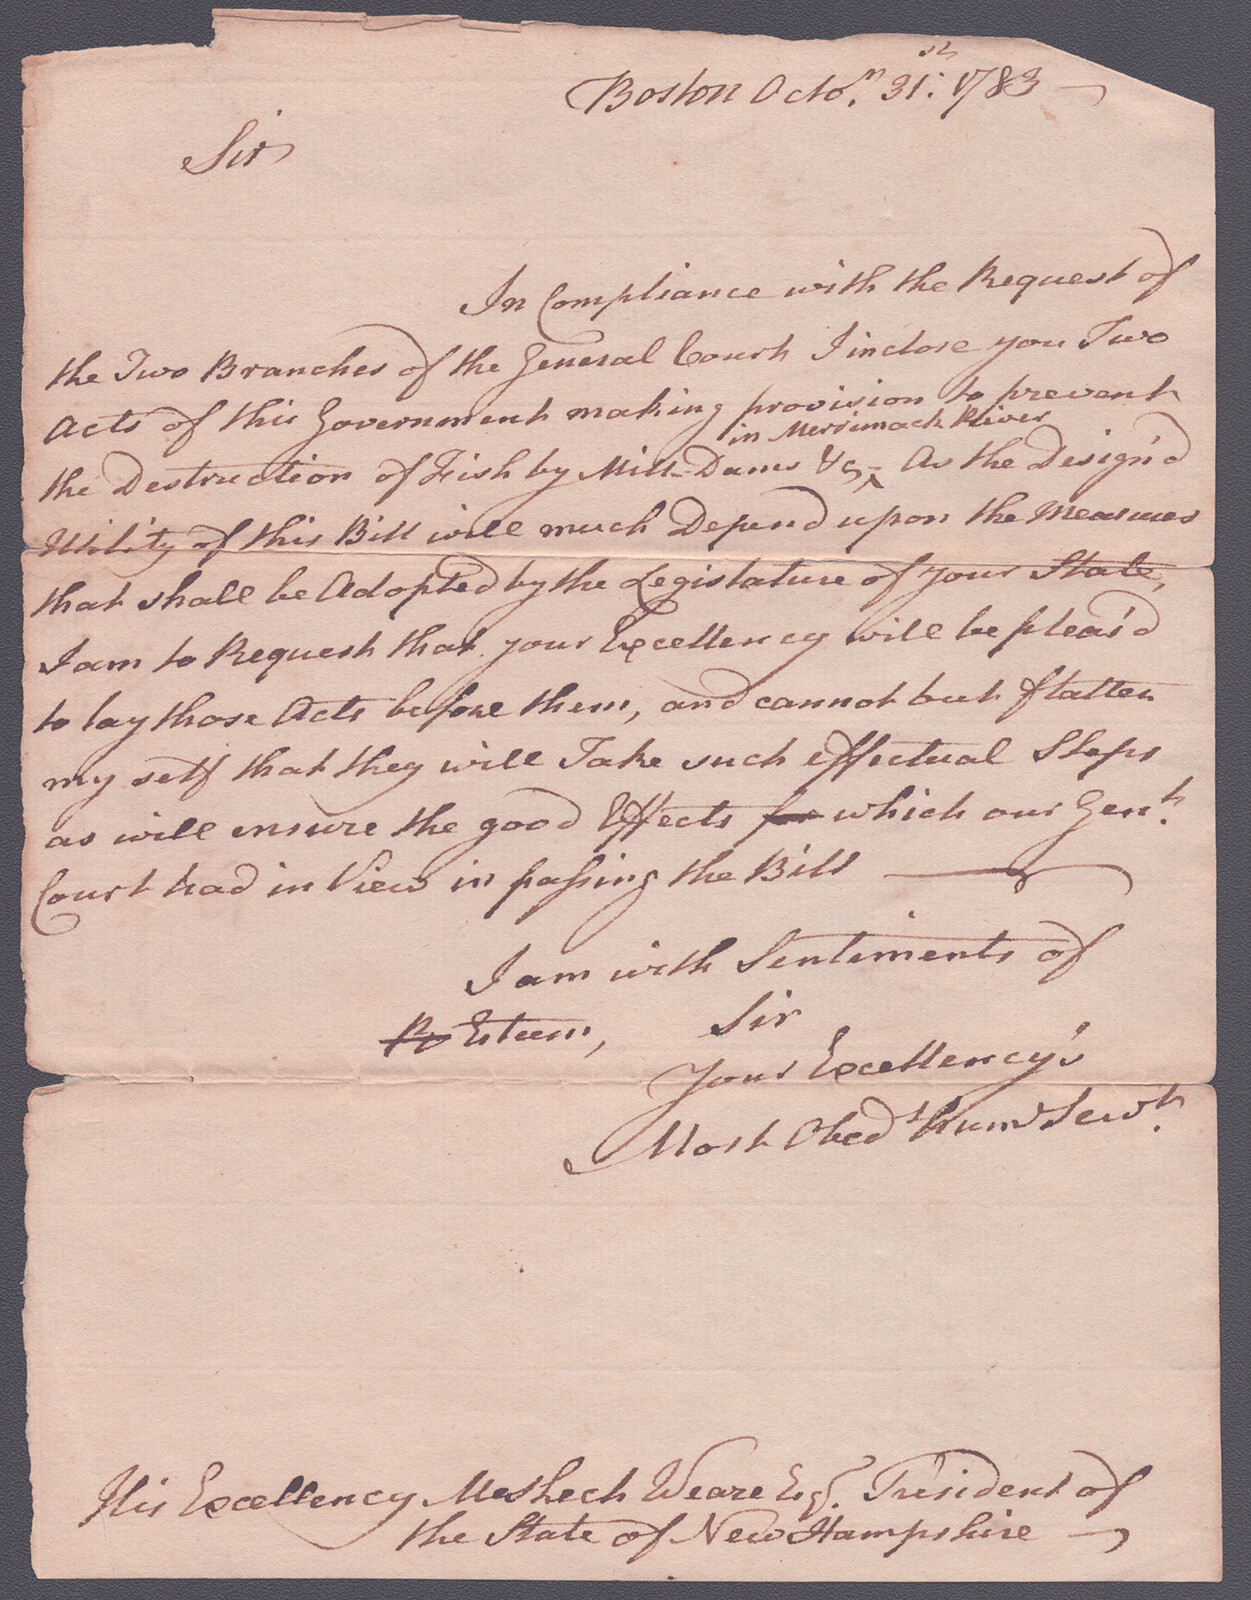 Boston Octo.r 31.st 1783
Sir
In Compliance with the Request of
the Two Branches of the General Court I inclose you Two
Acts of this Government making provision to prevent
in Merrimack River
the Destruction of Fish by Mill-Dams &c ‸ As the Design'd
Utility of this Bill will much Depend upon the Measures
that shall be Adopted by the Legislature of your State,
I am to Request that your Excellency will be pleas'd
to lay those Acts before them, and cannot but flatter
my self that they will Take such effectual Steps
as will ensure the good Effects for which our Gen.l
Court had in View in passing the Bill
I am with Sentiments of
Esteem, Sir
Your Excellency's
Most Obed.t hum Serv.t
His Excellency Meshech Weare Esq.r President of
the State of New Hampshire